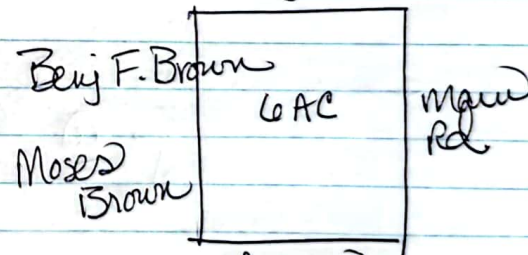 Benj F. Brown
6 AC
Main
Rd
Moses
Brown